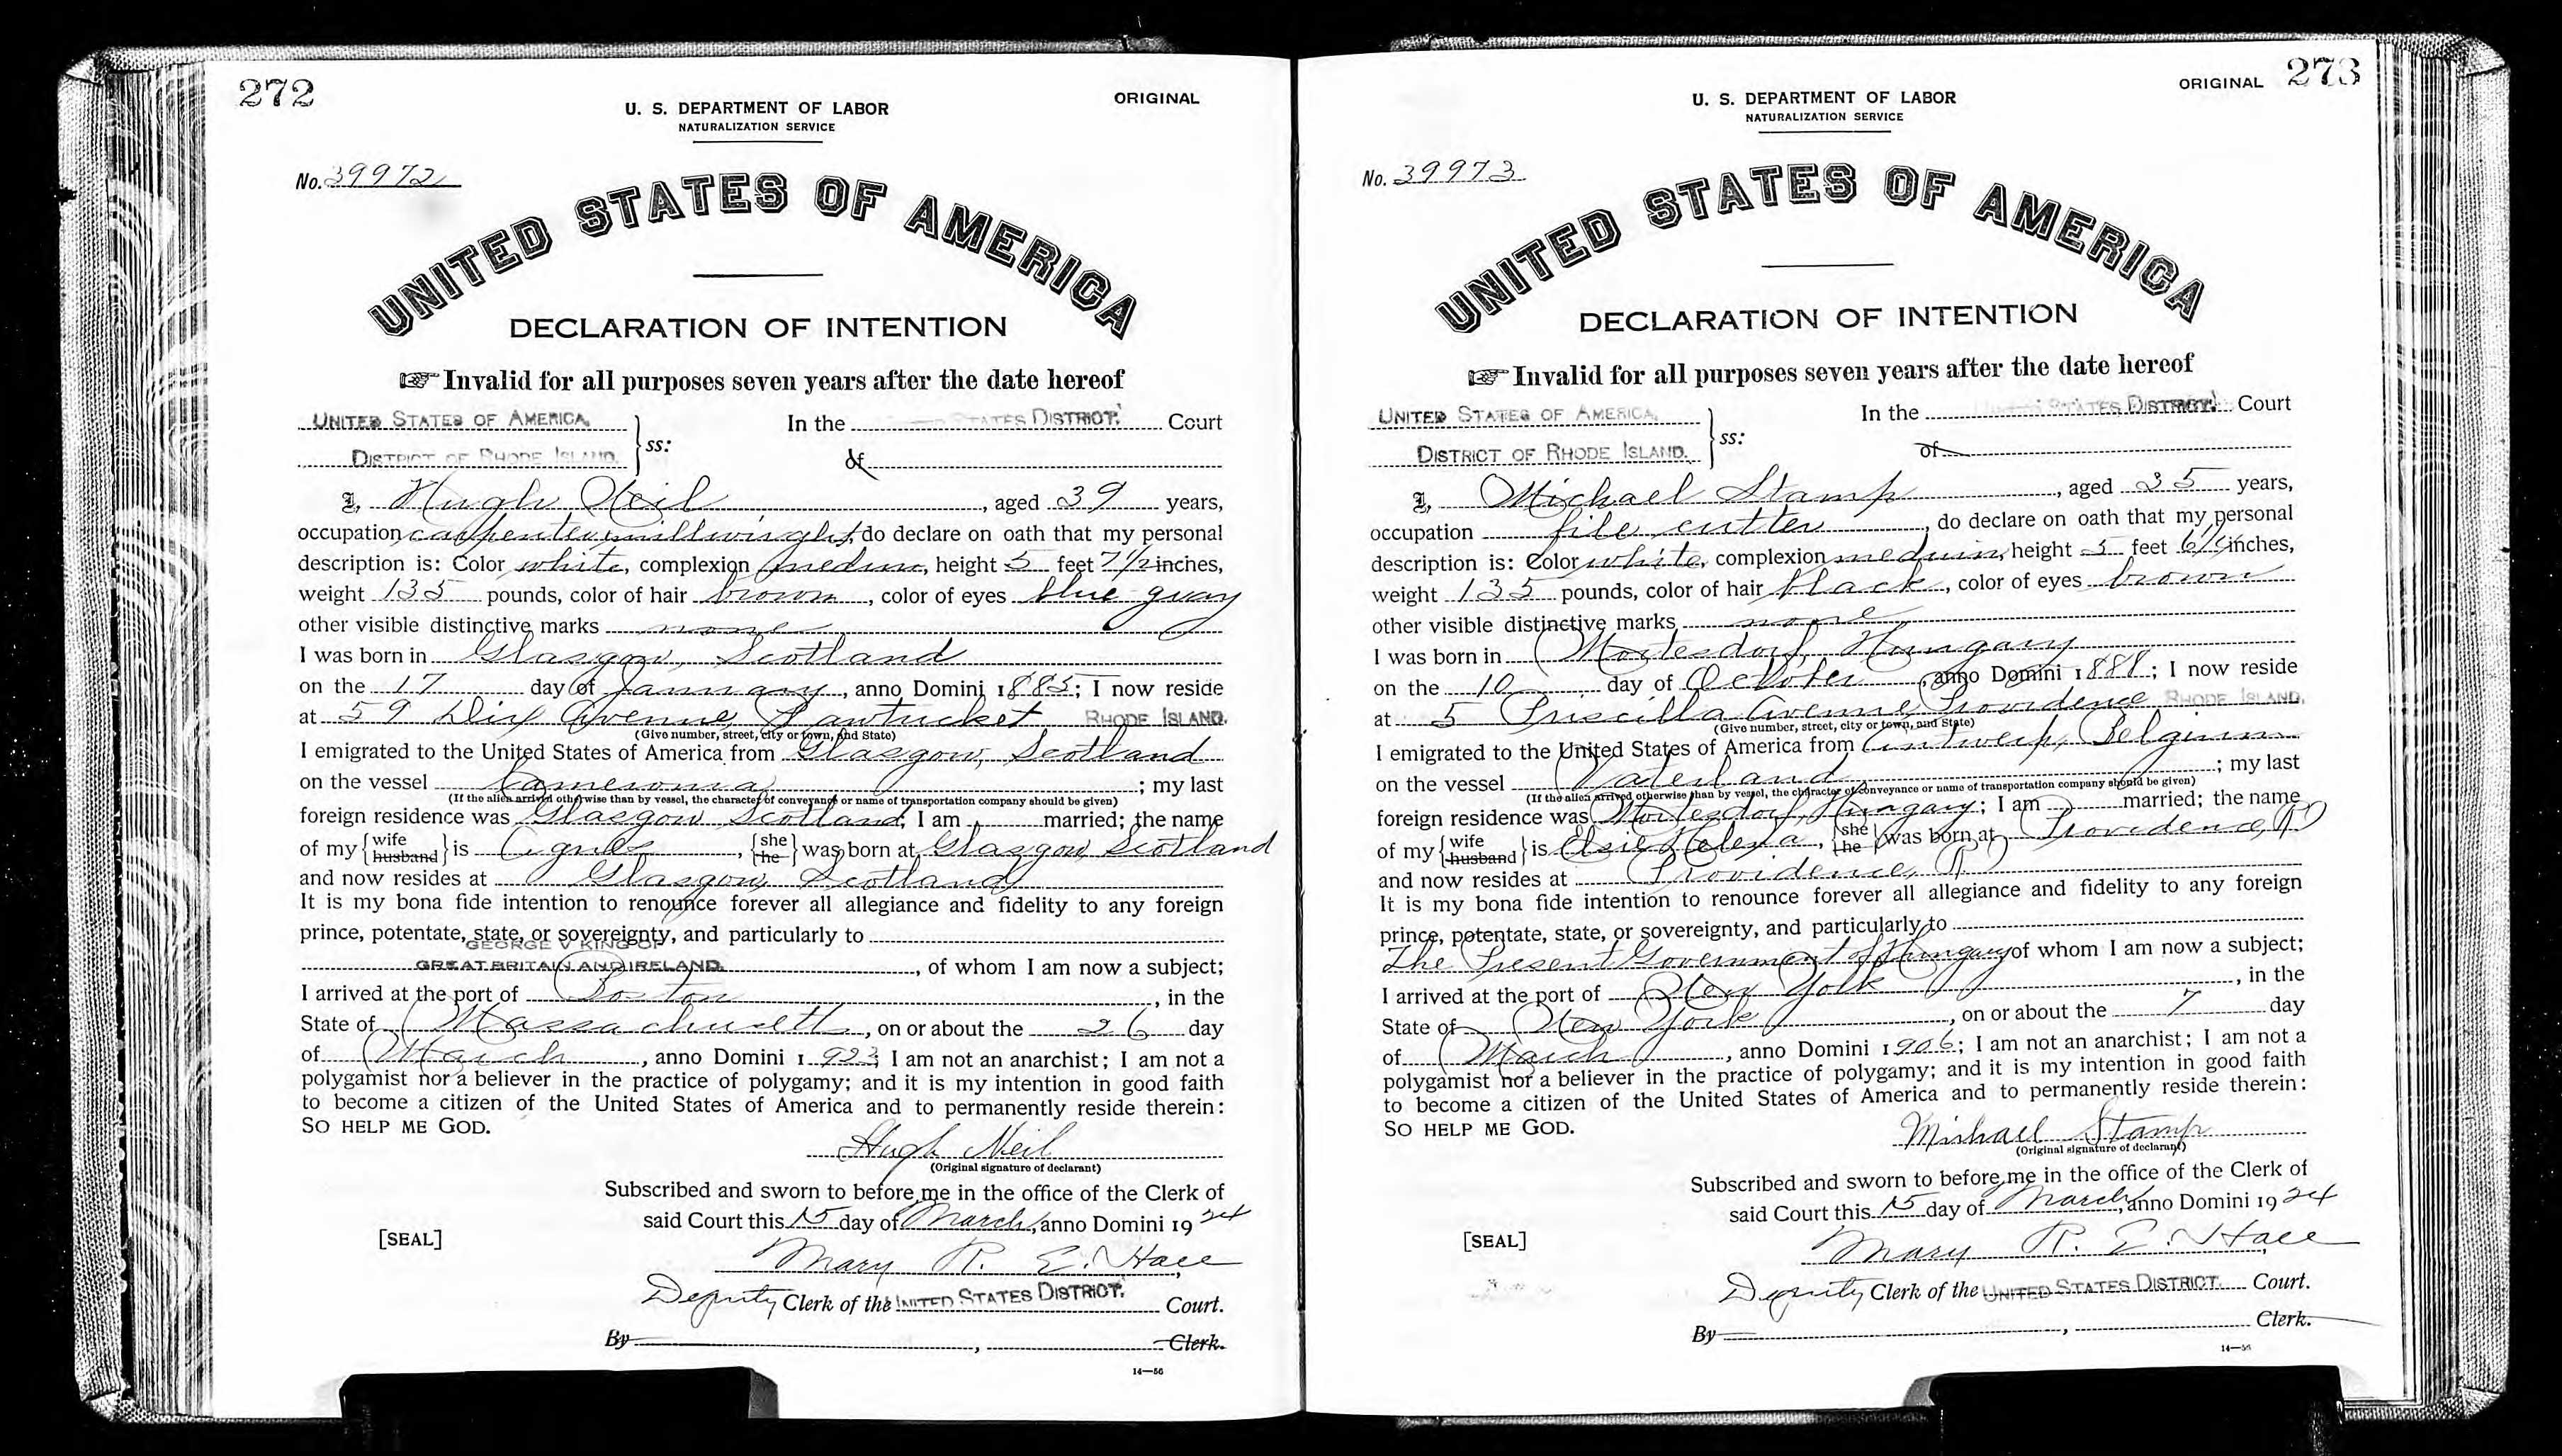 272
ORIGINAL
U. S. DEPARTMENT OF LABOR
NATURALIZATION SERVICE
No. 39972
UNITED STATES OF AMERICA
DECLARATION OF INTENTION
☞ Invalid for all purposes seven years after the date hereof
UNITED STATES OF AMERICA. In the STATES DISTRICT. Court
DISTRICT OF RHODE ISLAND. ss: of
I, Hugh Neil, aged 39 years,
occupation carpenter millwright, do declare on oath that my personal
description is: Color white, complexion medium, height 5 feet 7 1/2 inches,
weight 135 pounds, color of hair brown, color of eyes blue gray
other visible distinctive marks none
I was born in Glasgow, Scotland
on the 17 day of January, anno Domini 1885; I now reside
at 59 Dix Avenue, Pawtucket RHODE ISLAND.
(Give number, street, city or town, and State)
I emigrated to the United States of America from Glasgow, Scotland
on the vessel Cameronia; my last
(If the alien arrived otherwise than by vessel, the character of conveyance or name of transportation company should be given)
foreign residence was Glasgow Scotland; I am married; the name
of my {wife husband} is Agnes, {she he} was born at Glasgow, Scotland
and now resides at Glasgow, Scotland
It is my bona fide intention to renounce forever all allegiance and fidelity to any foreign
prince, potentate, state, or sovereignty, and particularly to
GEORGE V KING OF
GREAT BRITAIN AND IRELAND, of whom I am now a subject;
I arrived at the port of Boston, in the
State of Massachusetts, on or about the 26 day
of March, anno Domini 1923; I am not an anarchist; I am not a
polygamist nor a believer in the practice of polygamy; and it is my intention in good faith
to become a citizen of the United States of America and to permanently reside therein:
SO HELP ME GOD.
Hugh Neil
(Original signature of declarant)
Subscribed and sworn to before me in the office of the Clerk of
said Court this 15 day of March, anno Domini 1924
[SEAL]
Mary R. E. Hall
Deputy Clerk of the UNITED STATES DISTRICT. Court.
By , Clerk.
14—56
ORIGINAL 273
U. S. DEPARTMENT OF LABOR
NATURALIZATION SERVICE
No. 39973
UNITED STATES OF AMERICA
DECLARATION OF INTENTION
☞ Invalid for all purposes seven years after the date hereof
UNITED STATES OF AMERICA. In the STATES DISTRICT. Court
DISTRICT OF RHODE ISLAND. ss: of
I, Michael Stamp, aged 35 years,
occupation file cutter, do declare on oath that my personal
description is: Color white, complexion medium, height 5 feet inches,
weight 135 pounds, color of hair black, color of eyes brown
other visible distinctive marks none
I was born in Hungary
on the 10 day of October, anno Domini 1888; I now reside
at 5 Priscilla Avenue, Providence RHODE ISLAND.
(Give number, street, city or town, and State)
I emigrated to the United States of America from Antwerp, Belgium
on the vessel Vaterland; my last
(If the alien arrived otherwise than by vessel, the character of conveyance or name of transportation company should be given)
foreign residence was Hungary; I am married; the name
of my {wife husband} is Elsie Helena, {she he} was born at Providence, RI
and now resides at Providence, RI
It is my bona fide intention to renounce forever all allegiance and fidelity to any foreign
prince, potentate, state, or sovereignty, and particularly to
The Present Government of Hungary of whom I am now a subject;
I arrived at the port of New York, in the
State of New York, on or about the 7 day
of March, anno Domini 1906; I am not an anarchist; I am not a
polygamist nor a believer in the practice of polygamy; and it is my intention in good faith
to become a citizen of the United States of America and to permanently reside therein:
SO HELP ME GOD.
Michael Stamp
(Original signature of declarant)
Subscribed and sworn to before me in the office of the Clerk of
said Court this 15 day of March, anno Domini 1924
[SEAL]
Mary R. E. Hall
Deputy Clerk of the UNITED STATES DISTRICT. Court.
By , Clerk.
14—56